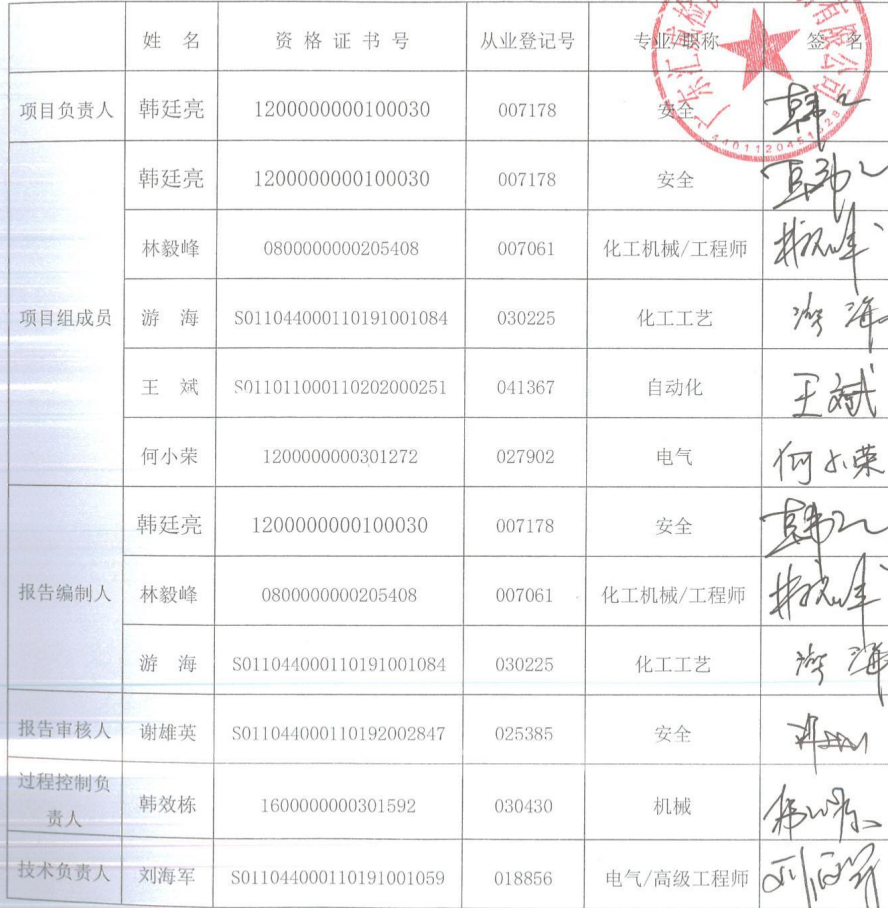 姓 名 资 格 证 书 号 从业登记号 专业/职称 签 名
项目负责人 韩廷亮 1200000000100030 007178 安全
项目组成员 韩廷亮 1200000000100030 007178 安全
林毅峰 0800000000205408 007061 化工机械/工程师 林毅峰
游 海 S011044000110191001084 030225 化工工艺 游 海
王 斌 S011011000110202000251 041367 自动化 王斌
何小荣 1200000000301272 027902 电气 何小荣
报告编制人 韩廷亮 1200000000100030 007178 安全
林毅峰 0800000000205408 007061 化工机械/工程师 林毅峰
游 海 S011044000110191001084 030225 化工工艺 游 海
报告审核人 谢雄英 S011044000110192002847 025385 安全
过程控制负
责人 韩效栋 1600000000301592 030430 机械
技术负责人 刘海军 S011044000110191001059 018856 电气/高级工程师 刘海军